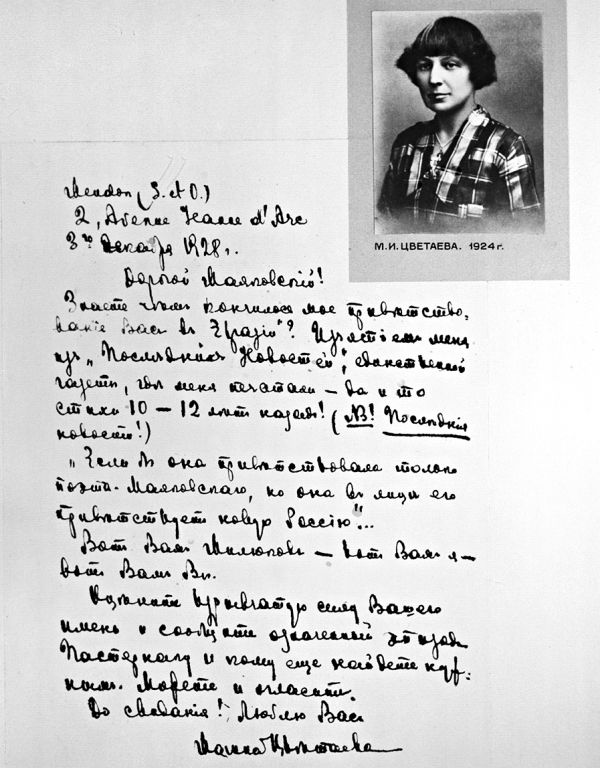 М.И. ЦВЕТАЕВА. 1924 г.
Meudon (S. et O.)
2, Avenue Jeanne d'Arc
3го Декабря 1928 г.
Дорогой Маяковский!
Знаете чѣмъ кончилось мое привѣтство-
ваніе Васъ въ „Евразіи"? Изъятіемъ меня
изъ „Послѣднихъ Новостей", единственной
газеты, гдѣ меня печатали — да и то
стихи 10 — 12 лѣтъ назадъ! (NB! Послѣднія
новости!)
„Если бъ она привѣтствовала только
поэта-Маяковскаго, но она въ лицѣ его
привѣтствуетъ новую Россію"...
Вотъ Вамъ Милюковъ — вотъ Вамъ я —
вотъ Вамъ Вы.
Оцѣните взрывчатую силу Вашего
имени и сообщите означенный эпизодъ
Пастернаку и кому еще найдете нуж-
нымъ. Можете и огласить.
До свиданія! Люблю Васъ
Марина Цвѣтаева